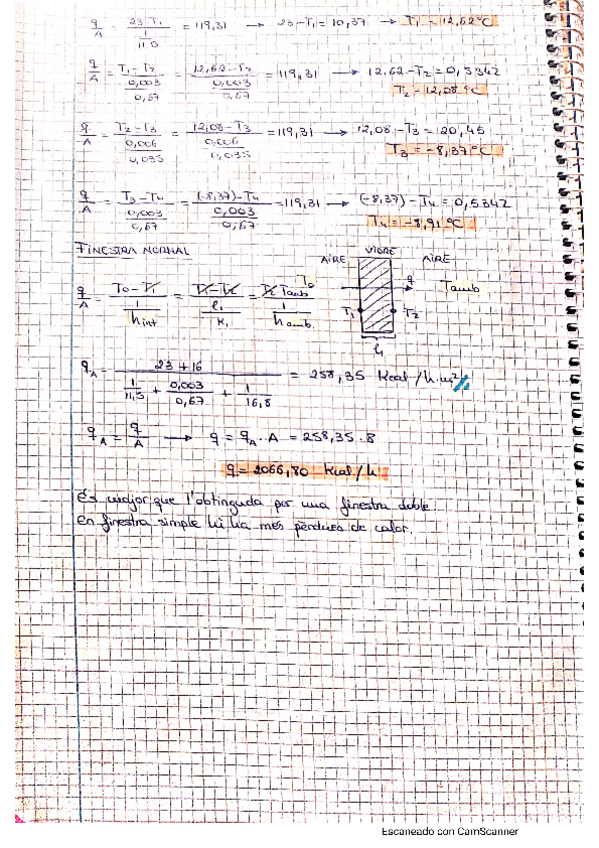 q/A = 23-T₁ / (1/11,5) = 119,31 → 23-T₁ = 10,37 → T₁ = 12,62°C
q/A = T₁-T₂ / (0,003/0,67) = 12,62-T₂ / (0,003/0,67) = 119,31 → 12,62-T₂ = 0,5342
T₂ = 12,08°C
q/A = T₂-T₃ / (0,006/0,035) = 12,08-T₃ / (0,006/0,035) = 119,31 → 12,08-T₃ = 20,45
T₃ = -8,37°C
q/A = T₃-T₄ / (0,003/0,67) = (-8,37)-T₄ / (0,003/0,67) = 119,31 → (-8,37)-T₄ = 0,5342
T₄ = -8,91°C
FINESTRA NORMAL
AIRE VIDRE AIRE
q/A = T₀-T₁ / (1/hint) = T₁-T₂ / (l₁/K₁) = T₂ Tamb / (1/hamb)
T₀ q Tamb
T₁ T₂
l₁
qA = 23+16 / (1/11,5 + 0,003/0,67 + 1/16,8) = 258,35 Kcal/h·m²//
qA = q/A → q = qA·A = 258,35·8
q = 2066,80 Kcal/h
és major que l'obtinguda per una finestra doble.
En finestra simple hi ha més pèrdues de calor.
Escaneado con CamScanner